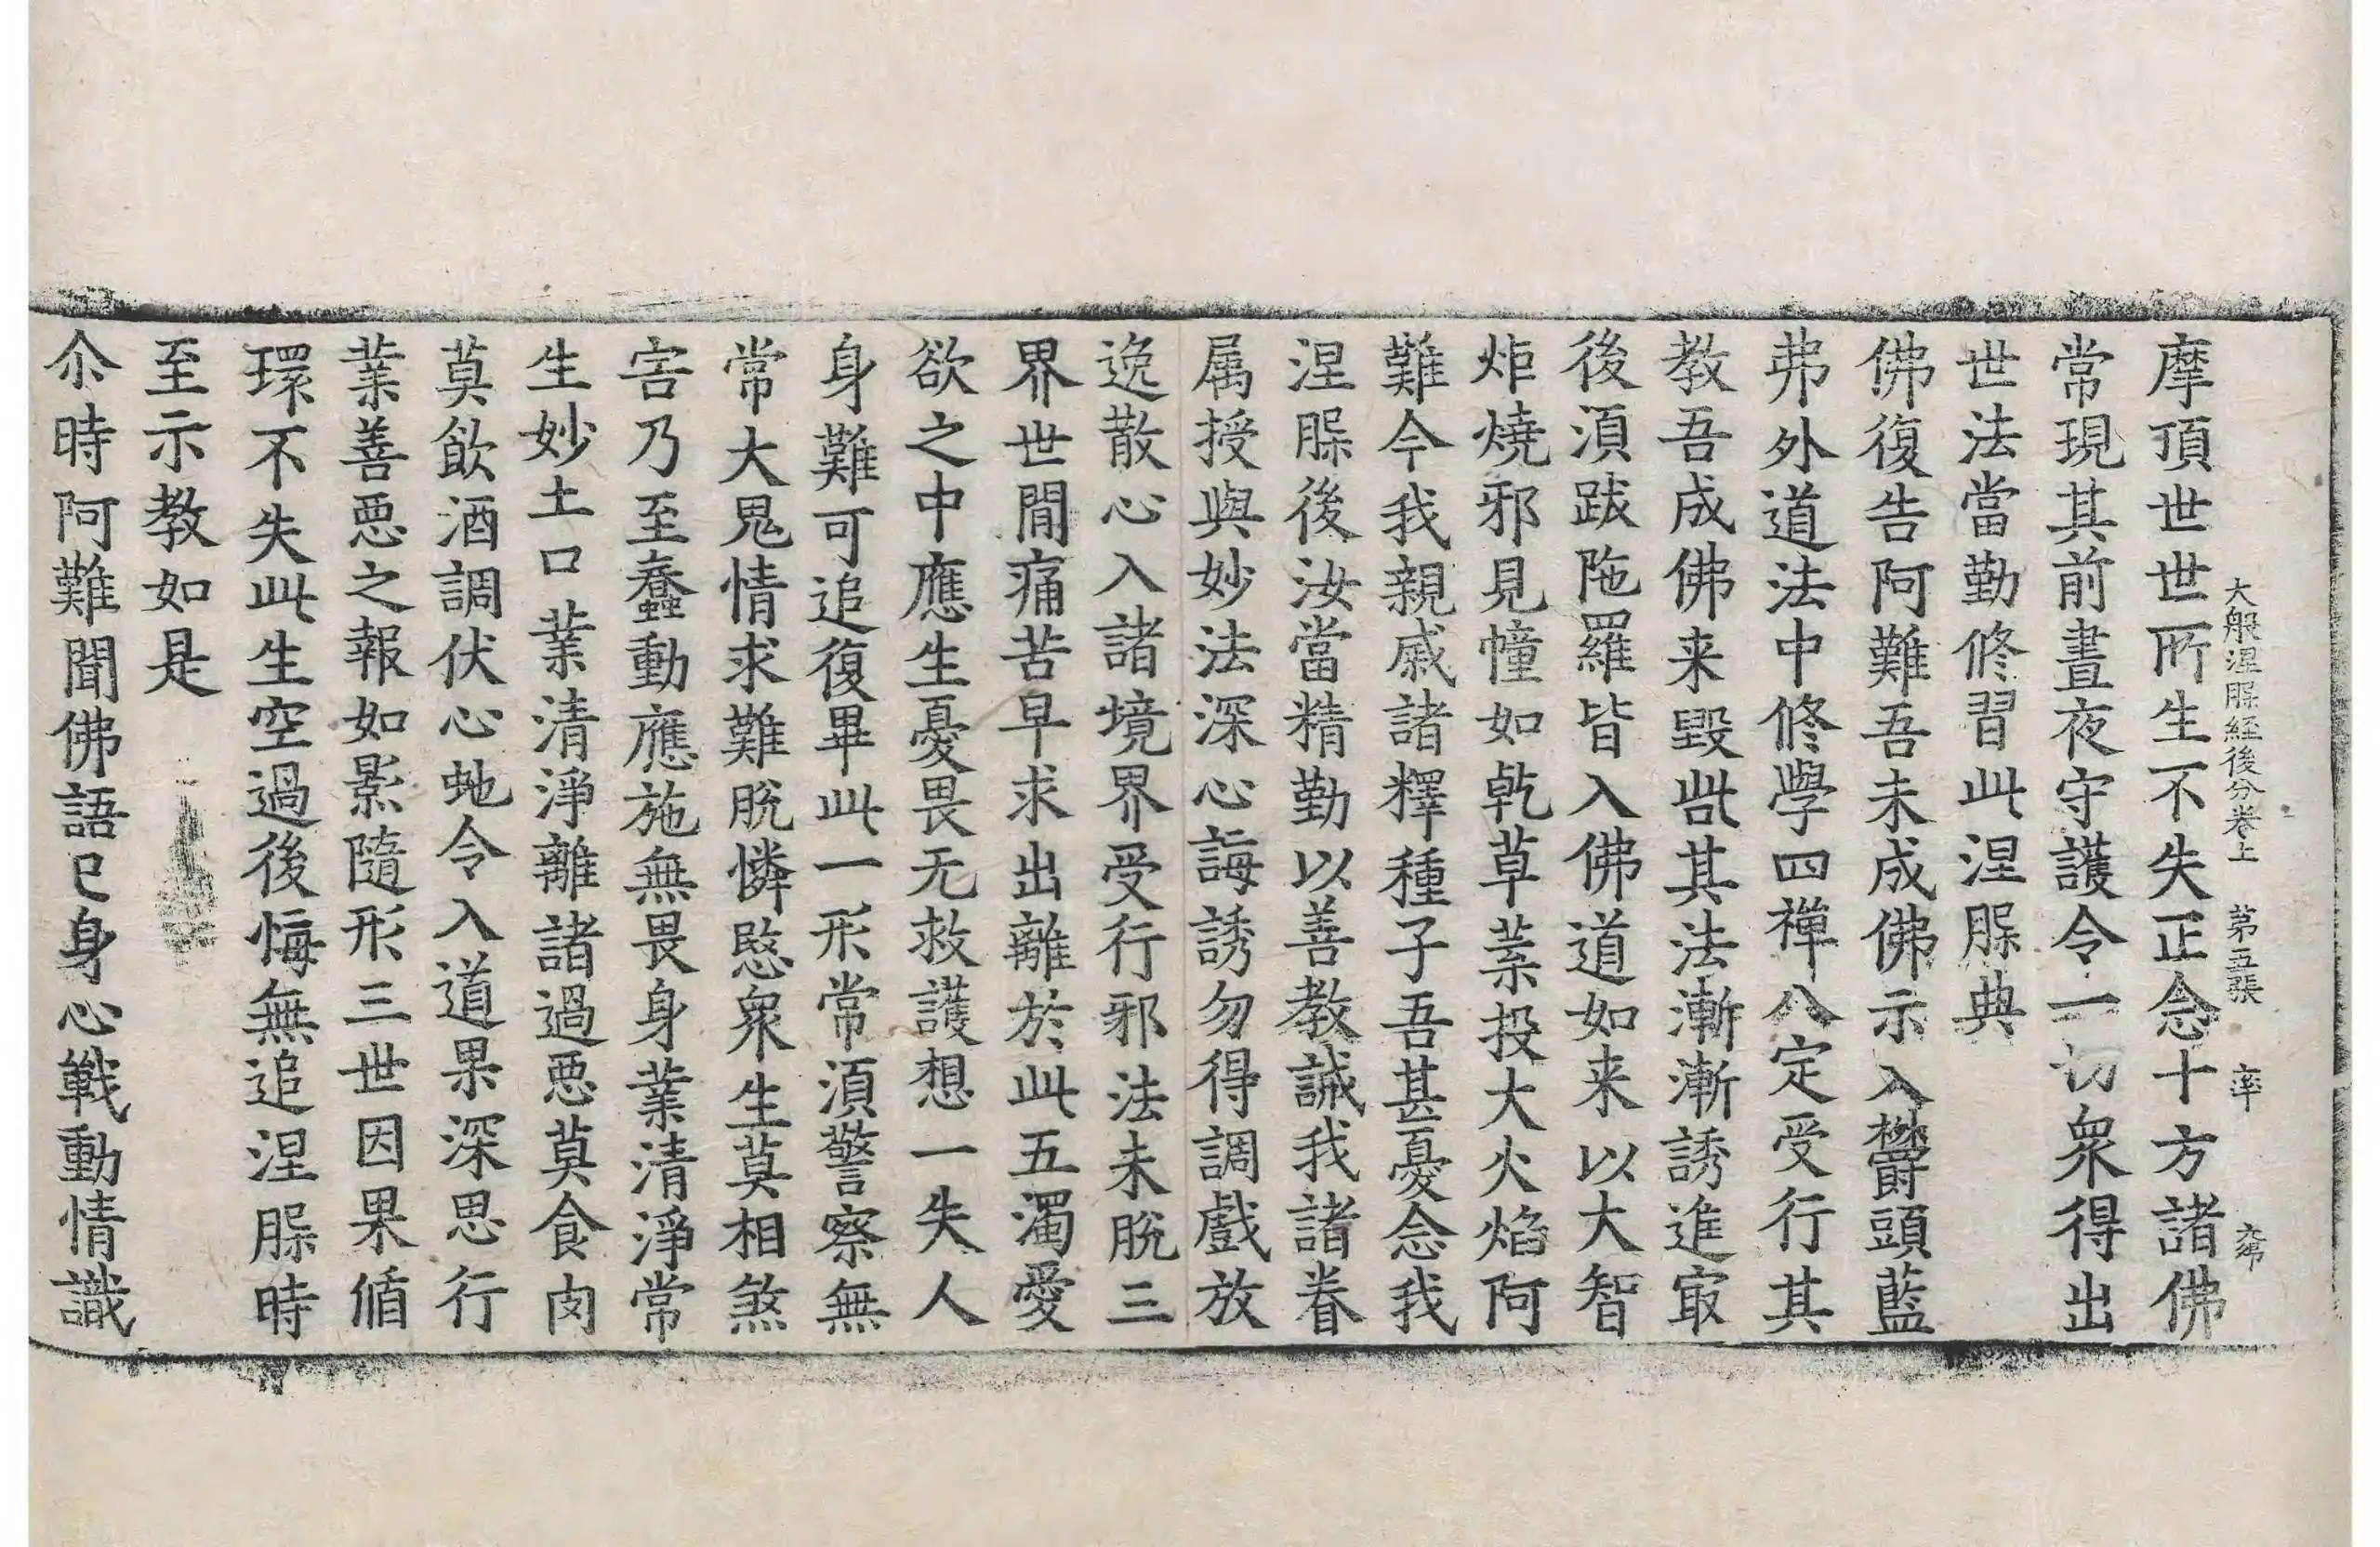 大般涅槃経後分卷上　第五張　率
摩頂世世所生不失正念十方諸佛
常現其前晝夜守護令一切衆得出
世法當勤修習此涅槃典
佛復告阿難吾未成佛示入欝頭藍
弗外道法中修學四禪八定受行其
教吾成佛来毀呰其法漸漸誘進㝡
後湏跋陁羅皆入佛道如来以大智
炬燒邪見幢如乾草葉投大火焰阿
難今我親戚諸釋種子吾甚憂念我
涅槃後汝當精勤以善教誡我諸眷
属授與妙法深心誨誘勿得調戲放
逸散心入諸境界受行邪法未脫三
界世間痛苦早求出離於此五濁愛
欲之中應生憂畏无救護想一失人
身難可追復畢此一形常湏警察無
常大鬼情求難脫憐愍衆生莫相煞
害乃至蠢動應施無畏身業清淨常
生妙土口業清淨離諸過惡莫食肉
莫飲酒調伏心虵令入道果深思行
業善惡之報如影隨形三世因果循
環不失此生空過後悔無追涅槃時
至示教如是
尒時阿難聞佛語已身心戰動情識